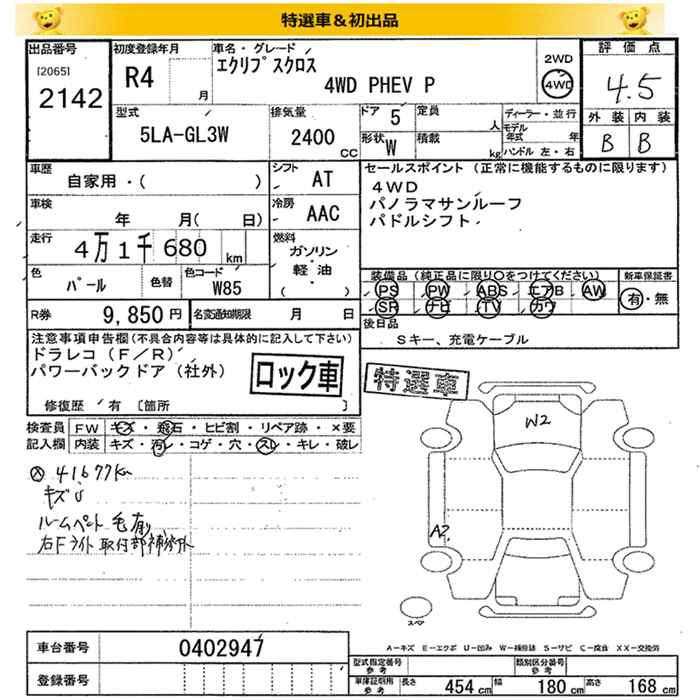 特選車＆初出品
出品番号
[2065]
2142
初度登録年月
R4 月
車名・グレード
エクリプスクロス
4WD PHEV P
2WD
4WD
評価点
4.5
外装 内装
B B
型式
5LA-GL3W
排気量
2400 CC
ドア 5
定員 人
形状 W
積載 kg
ディーラー・並行
モデル年式 年
ハンドル 左・右
車歴
自家用・( )
シフト
AT
車検
年 月( 日)
冷房
AAC
走行
4万1千680 km
燃料
ガソリン
軽油
( )
色
パール
色替
色コード
W85
R券
9,850円
名変通知期限 月 日
セールスポイント(正常に機能するものに限ります)
4WD
パノラマサンルーフ
パドルシフト
装備品(純正品に限り○をつけてください)
PS PW ABS エアB AW
SR ナビ TV カワ
新車保証書
有・無
後日品
Sキー、充電ケーブル
注意事項申告欄(不具合内容等は具体的に記入して下さい)
ドラレコ(F/R)
パワーバックドア(社外)
ロック車
修復歴 有 [箇所 ]
特選車
検査員 FW キズ・飛石・ヒビ割・リペア跡・×要
記入欄 内装 キズ・汚レ・コゲ・穴・スレ・キレ・破レ
41,677km
キズU
ルームペット毛有り
右Fライト取付部補修済
W2
A2
スペア
A－キズ E－エクボ U－凹み W－補修跡 S－サビ C－腐食 XX－交換済
車台番号
0402947
登録番号
型式指定番号 参考
類別区分番号 参考
車庫証明用 参考
長さ 454 cm 幅 180 cm 高さ 168 cm